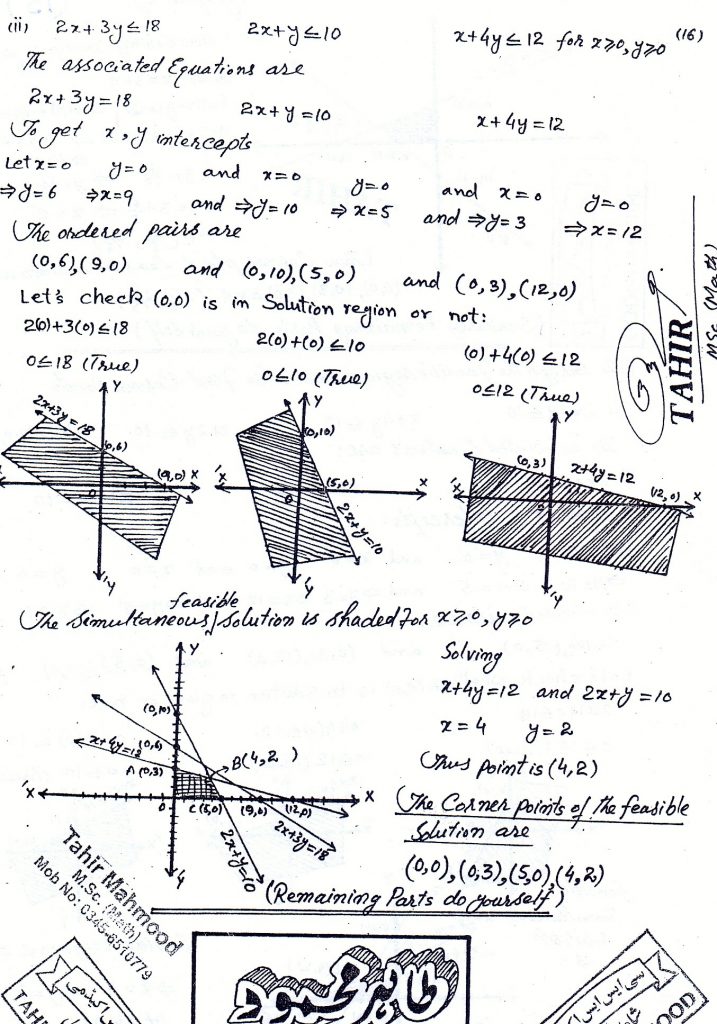 (ii) 2x+3y≤18 2x+y≤10 x+4y≤12 for x≥0, y≥0 (16)
The associated Equations are
2x+3y=18 2x+y=10 x+4y=12
To get x, y intercepts
Let x=0 y=0 and x=0 y=0 and x=0 y=0
⇒y=6 ⇒x=9 and ⇒y=10 ⇒x=5 and ⇒y=3 ⇒x=12
The ordered pairs are
(0,6),(9,0) and (0,10),(5,0) and (0,3),(12,0)
Let's check (0,0) is in Solution region or not:
2(0)+3(0)≤18 2(0)+(0)≤10 (0)+4(0)≤12
0≤18 (True) 0≤10 (True) 0≤12 (True)
TAHIR
MSc (Math)
Y
2x+3y=18
(0,6)
(9,0) X
'X
0
'Y
Y
(0,10)
'X
0
(5,0)
X
2x+y=10
'Y
Y
(0,3)
x+4y=12
(12,0)
X
'X
0
'Y
feasible
The Simultaneous/Solution is shaded for x≥0, y≥0
Y
(0,10)
(0,6)
x+4y=12
A (0,3)
B(4,2)
'X
0
C(5,0)
(9,0)
(12,0)
X
2x+y=10
2x+3y=18
'Y
Solving
x+4y=12 and 2x+y=10
x=4 y=2
Thus point is (4,2)
The Corner points of the feasible
Solution are
(0,0),(0,3),(5,0),(4,2)
(Remaining Parts do yourself)
Tahir Mahmood
M.Sc. (Math)
Mob No: 0345-6510779
طاہر محمود
سی ایس ایس
TAHI
OOD